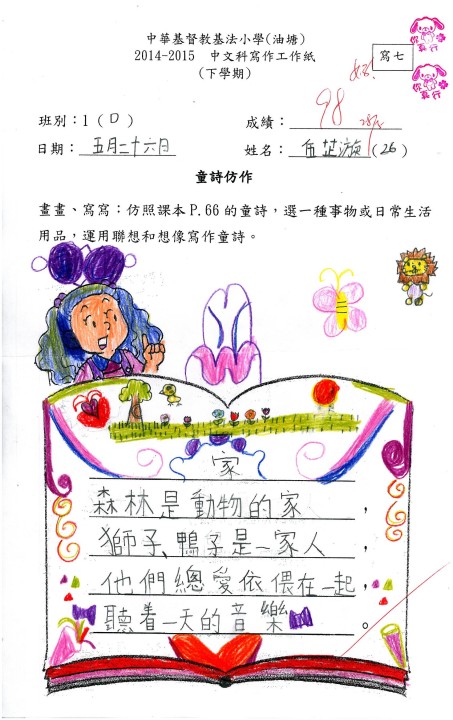 中華基督教基法小學(油塘)
2014-2015 中文科寫作工作紙
(下學期)
寫七
你真行
你真行
班別:1 ( D )
成績: 98
日期: 五月二十六日
姓名: 伍芷漩 (26)
童詩仿作
畫畫、寫寫:仿照課本P.66的童詩,選一種事物或日常生活
用品,運用聯想和想像寫作童詩。
家
森林是動物的家,
獅子、鴨子是一家人,
他們總愛依偎在一起,
聽着一天的音樂。